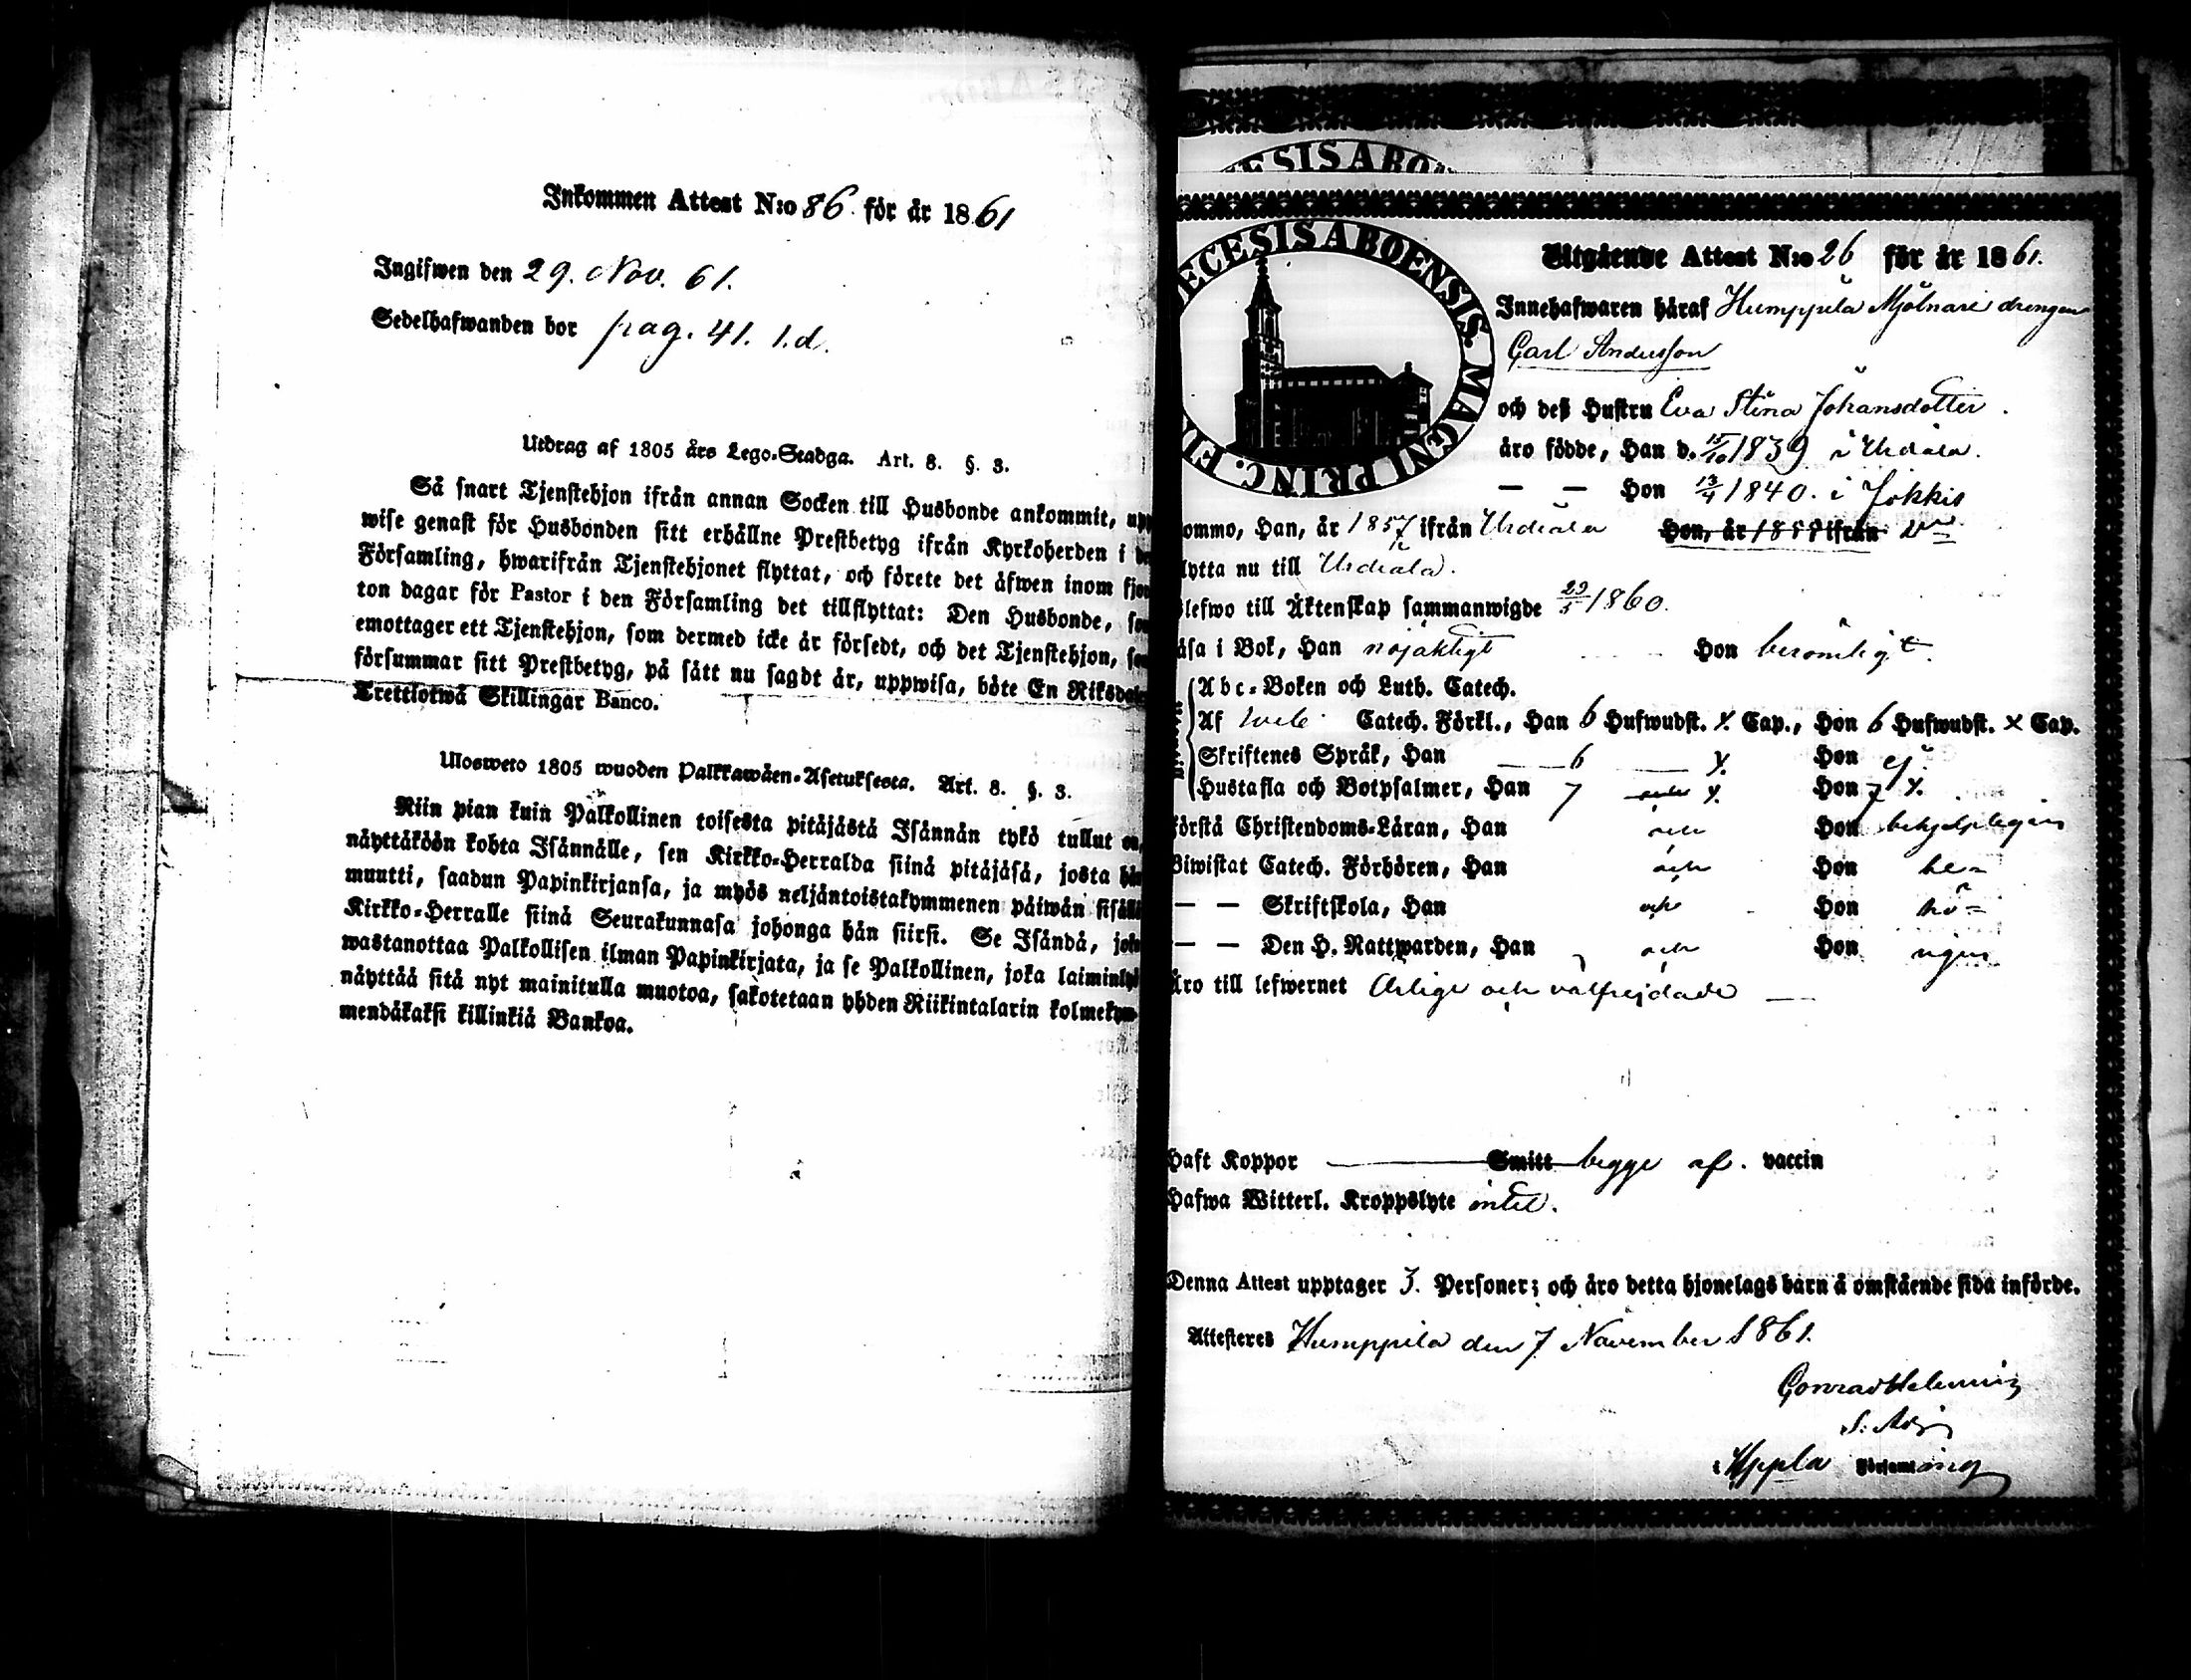 Inkommen Attest N:o 86 för år 1861
Ingifwen den 29. Nov. 61.
Sedelhafwanden bor pag. 41. 1.d.
Utdrag af 1805 års Lego-Stadga. Art. 8. §. 3.
Så snart Tjenstehjon ifrån annan Socken till Husbonde ankommit,
wise genast för Husbonden sitt erhållne Prestbetyg ifrån Kyrkoherden i
Församling, hwarifrån Tjenstehjonet flyttat, och förete det äfwen inom
ton dagar för Pastor i den Församling det tillflyttat: Den Husbonde,
emottager ett Tjenstehjon, som dermed icke är försedt, och det Tjenstehjon,
försummar sitt Prestbetyg, på sätt nu sagdt är, uppwisa, böte En Riksdaler
Trettiotwå Skillingar Banco.
Ulosweto 1805 wuoden Palkkawäen-Asetuksesta. Art. 8. §. 3.
Niin pian kuin Palkollinen toisesta pitäjästä Isännän tykö tullut on,
näyttäköön kohta Isännälle, sen Kirkko-Herralda siinä pitäjäsä, josta hän
muutti, saadun Papinkirjansa, ja myös neljäntoistakymmenen päiwän sisällä
Kirkko-Herralle siinä Seurakunnasa johonga hän siirsi. Se Isändä, joka
wastanottaa Palkollisen ilman Papinkirjata, ja se Palkollinen, joka laiminlyö
näyttää sitä nyt mainitulla muotoa, sakotetaan yhden Riikintalarin kolmekym-
mendäkaksi killinkiä Bankoa.
ECESIS ABO
ECESIS ABOENSIS. MAGNI PRINC. FI
Utgående Attest N:o 26 för år 1861.
Innehafwaren häraf Humppila Mjölnare drengen
Carl Andersson
och deß Hustru Eva Stina Johansdotter.
äro födde, Han d. 15/10 1839 i Urdiala.
— — Hon 13/4 1840. i Jokkis
ommo, Han, år 1857 ifrån Urdiala Hon, år 1858 ifrån
lytta nu till Urdiala.
lefwo till Äktenskap sammanwigde 1860.
äsa i Bok, Han nöjaktigt Hon berömligt.
Abc-Boken och Luth. Catech.
Af Catech. Förkl., Han 6 Hufwudst. X Cap., Hon 6 Hufwudst. X Cap.
Skriftenes Språk, Han 6 X. Hon ej.
Hustafla och Botpsalmer, Han 7 X. Hon 7 X.
örstå Christendoms-Läran, Han och Hon behjelpligen
Biwistat Catech. Förhören, Han och Hon be=
— — Skriftskola, Han och Hon hö=
— — Den H. Nattwarden, Han och Hon rigen
Äro till lefwernet Ärlige och välfrejdade
Haft Koppor Smitt begge af. vaccin
Hafwa Witterl. Kroppslyte intet.
Denna Attest upptager 3. Personer; och äro detta hjonelags barn å omstående sida införde.
Attesteres Humppila den 7 November 1861.
Conrad Helenius
S. Adj.
i Hppla Församling